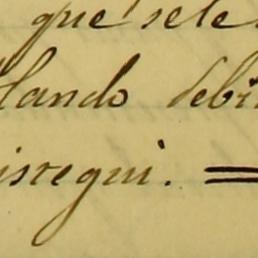 que sele
lando debi
istequi. =